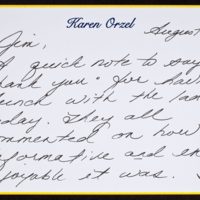 Karen Orzel
August
Jim,
A quick note to say
thank you" for hav
lunch with the
day. They all
commented on how
formative and en
joyable it was.